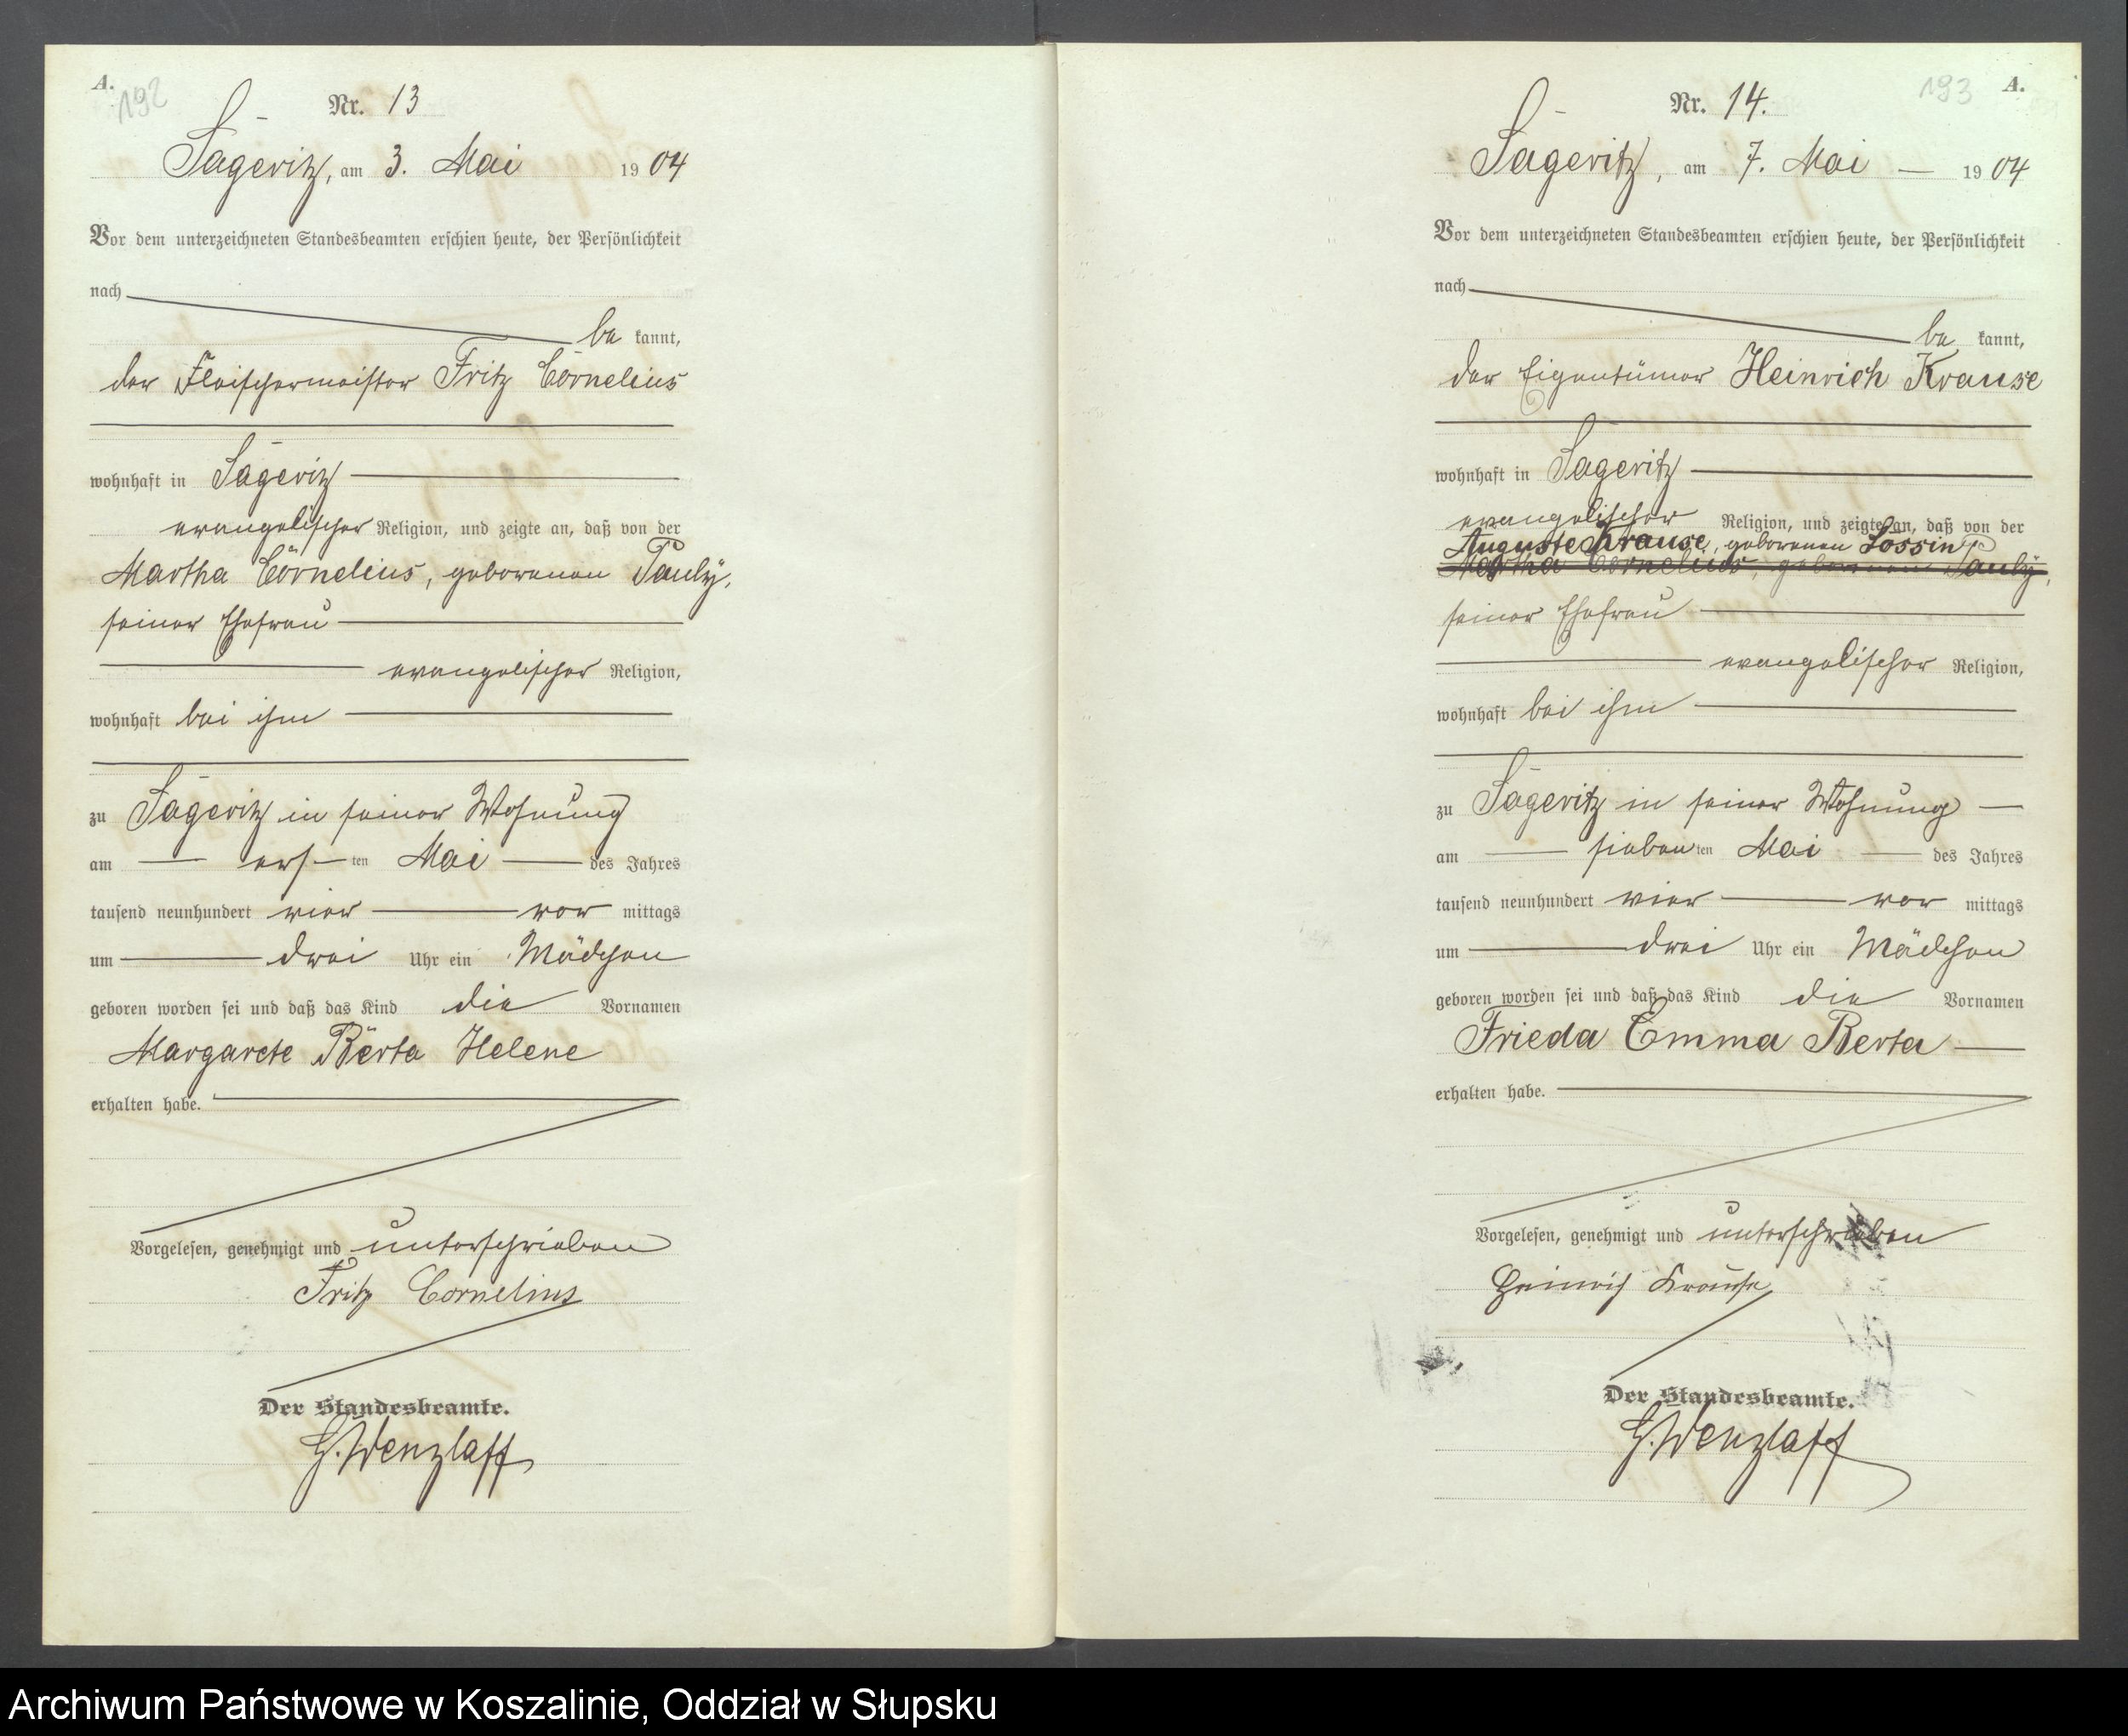 A.
192
Nr. 13
Sageritz, am 3. Mai 1904
Vor dem unterzeichneten Standesbeamten erschien heute, der Persönlichkeit
nach
be kannt,
der Fleischermeister Fritz Cornelius
wohnhaft in Sageritz
evangelischer Religion, und zeigte an, daß von der
Martha Cornelius, geborenen Pauly,
seiner Ehefrau
evangelischer Religion,
wohnhaft bei ihm
zu Sageritz in seiner Wohnung
am ers ten Mai des Jahres
tausend neunhundert vier vor mittags
um drei Uhr ein Mädchen
geboren worden sei und daß das Kind die Vornamen
Margarete Berta Helene
erhalten habe.
Vorgelesen, genehmigt und unterschrieben
Fritz Cornelius
Der Standesbeamte.
G. Wenzlaff
193
A.
Nr. 14.
Sageritz, am 7. Mai 1904
Vor dem unterzeichneten Standesbeamten erschien heute, der Persönlichkeit
nach
be kannt,
der Eigentümer Heinrich Krause
wohnhaft in Sageritz
evangelischer Religion, und zeigte an, daß von der
Auguste Krause, geborenen Lossin
Martha Cornelius, geborenen Pauly,
seiner Ehefrau
evangelischer Religion,
wohnhaft bei ihm
zu Sageritz in seiner Wohnung
am sieben ten Mai des Jahres
tausend neunhundert vier vor mittags
um drei Uhr ein Mädchen
geboren worden sei und daß das Kind die Vornamen
Frieda Emma Berta
erhalten habe.
Vorgelesen, genehmigt und unterschrieben
Heinrich Krause
Der Standesbeamte.
G. Wenzlaff
Archiwum Państwowe w Koszalinie, Oddział w Słupsku